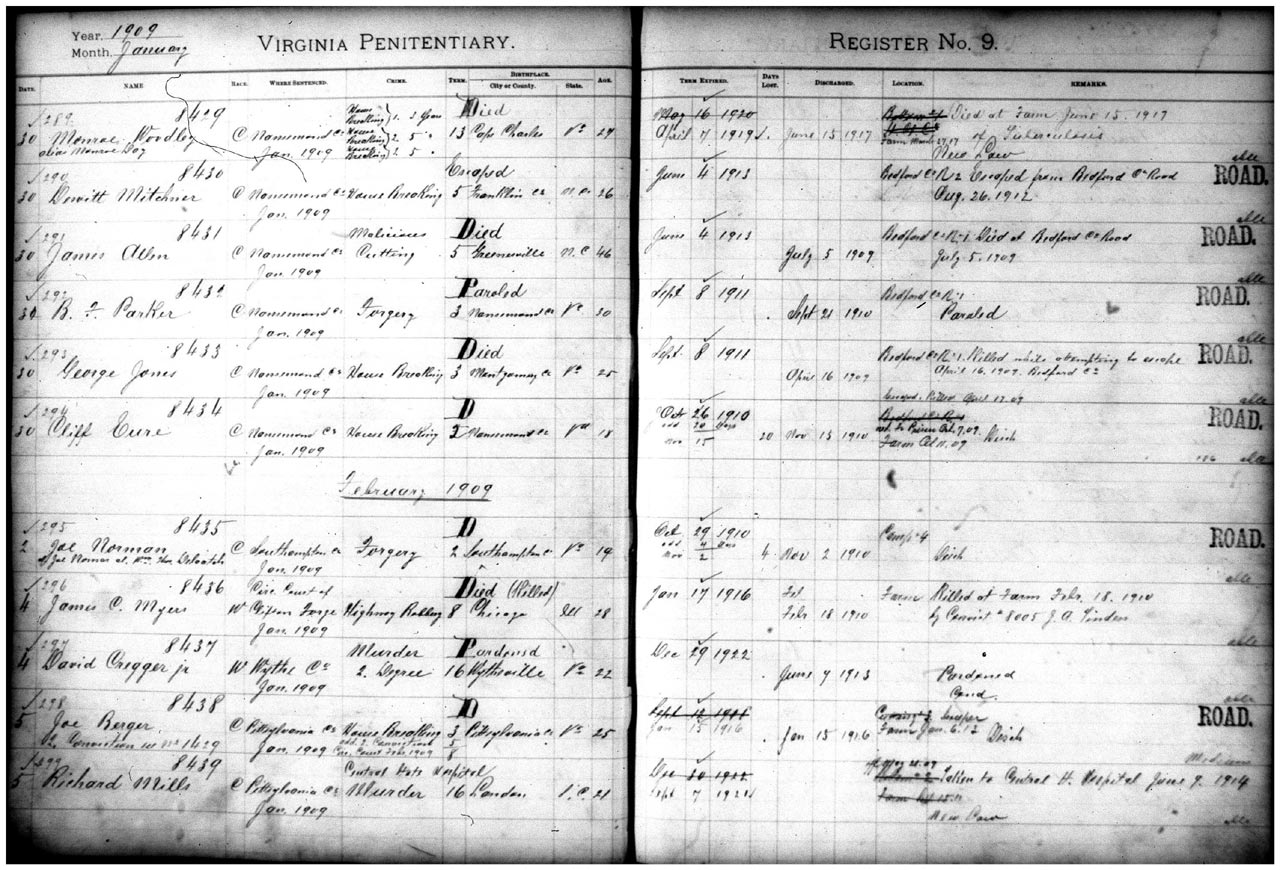 Year. 1909
Month. January
VIRGINIA PENITENTIARY.
REGISTER No. 9.
DATE. NAME RACE. WHERE SENTENCED. CRIME. TERM. BIRTHPLACE. City or County. State. AGE.
TERM EXPIRED. DAYS LOST. DISCHARGED. LOCATION. REMARKS.
289 8429 House Breaking 1. 3 Years Died May 16 1920 Died at Farm June 15. 1917
30 Monroe Woodley C Nansemond Co House Breaking 2. 5 " 13 Cape Charles Va 27 April 7 1919 June 15 1917 of Tuberculosis
alias Monroe Day Jan. 1909 House Breaking 2. 5 " New Law
290 8430 Escaped June 4 1913 Bedford Co R-2 Escaped from Bedford Co Road ROAD.
30 Dewitt Mitchner C Nansemond Co House Breaking 5 Franklin Co N.C. 26 Aug. 26. 1912
Jan. 1909
291 8431 Malicious Died June 4 1913 Bedford Co R-1 Died at Bedford Co Road ROAD.
30 James Allen C Nansemond Co Cutting 5 Greenville N.C 46 July 5 1909 July 5. 1909
Jan. 1909
292 8432 Paroled Sept 8 1911 Bedford Co R-1 ROAD.
30 B. F. Parker C Nansemond Co Forgery 3 Nansemond Co Va 30 Sept 21 1910 Paroled
Jan. 1909
293 8433 Died Sept 8 1911 Bedford Co R-1. Killed while attempting to escape ROAD.
30 George Jones C Nansemond Co House Breaking 3 Montgomery Co Va 25 April 16 1909 April 16. 1909. Bedford Co
Jan. 1909
294 8434 D Oct 26 1910 Bedford Co Road ROAD.
30 Cliff Cure C Nansemond Co House Breaking 2 Nansemond Co Va 18 add 20 Days 20 Nov 15 1910 ret. to Prison Oct. 7. 09. Disch
Jan. 1909 Nov 15 Farm Oct 11. 09
February 1909
295 8435 D Oct 29 1910 Camp #4 ROAD.
2 Joe Norman C Southampton Co Forgery 2 Southampton Co Va 19 add 4 Days 4 Nov 2 1910 Disch
Jan. 1909 Nov 2
296 8436 Circ Court of Died (Killed) Jan 17 1916 Farm Killed at Farm Feb. 18. 1910
4 James C. Myers W Clifton Forge Highway Robbery 8 Chicago Ill 28 Feb 18 1910 by Convict # 8005 J. A. Linden
Jan. 1909
297 8437 Murder Pardoned Dec 29 1922
4 David Cregger jr W Wythe Co 2. Degree 16 Wytheville Va 22 June 7 1913 Pardoned
Jan. 1909 Cond.
298 8438 D ROAD.
5 Joe Berger C Pittsylvania Co House Breaking 3 Pittsylvania Co Va 25 Jan 15 1916 Jan 15 1916 Farm Jan. 6. 12 Disch
2. Conviction see No 1429 Jan. 1909 add. 2. Conviction 5
Circ. Court Feb. 1909 8
299 8439 Central State Hospital Dec 30 1922 Taken to Central H. Hospital June 9. 1914
5 Richard Mills C Pittsylvania Co Murder 16 London 21 Sept 7 1921
Jan. 1909 New Law